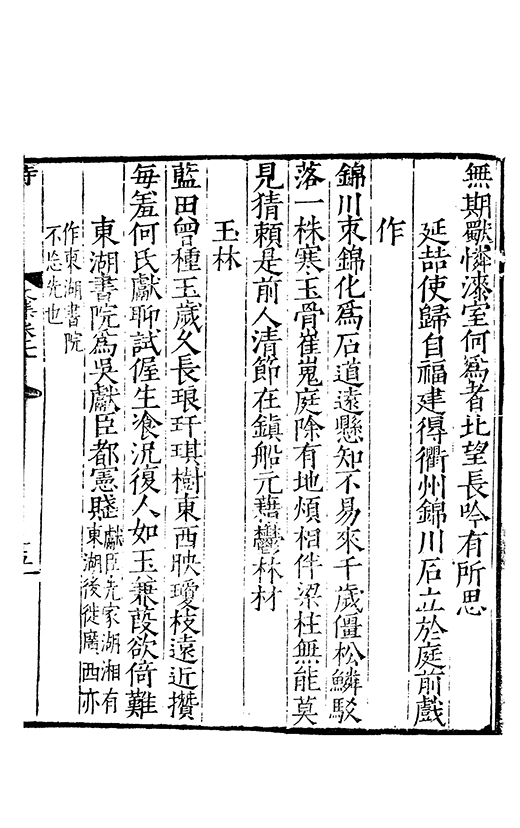 無期獸憐漆室何爲者北望長吟有所思
延喆使歸自福建得衢州錦川石立於庭前戲
作
錦川朿錦化爲石道遠懸知不易來千歲僵松鱗駁
落一株寒玉骨崔嵬庭除有地煩相伴梁柱無能莫
見猜賴是前人清節在鎮船元藉鬱林材
玉林
藍田曾種玉歲久長琅玕琪樹東西映瓊枝遠近攢
每羞何氏獻聊試偓生飡況復人如玉蒹葭欲倚難
東湖書院爲吳獻臣都憲賦
獻臣先家湖湘有
東湖後徙廣西亦
作東湖書院
不忘先也